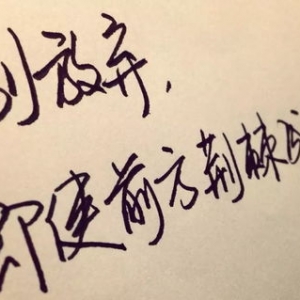 别放弃,
即使前方荆棘